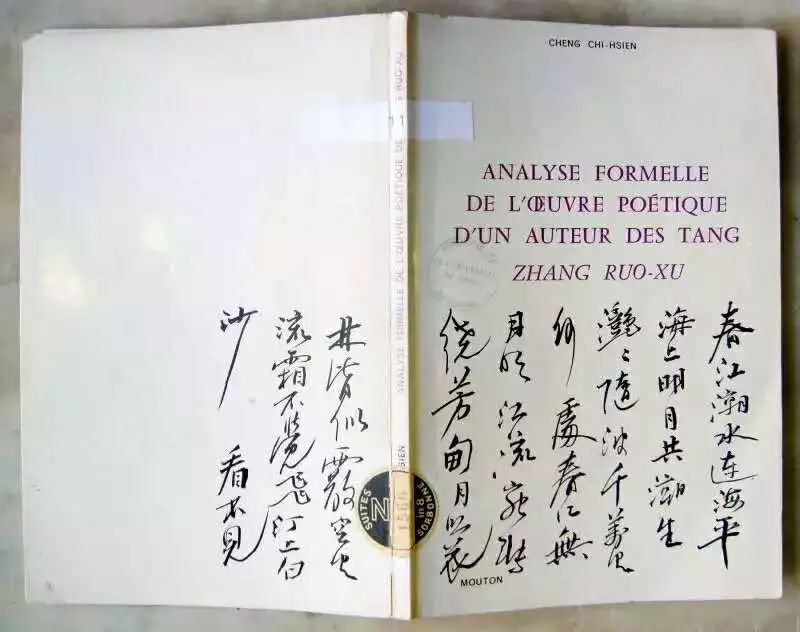 CHENG CHI-HSIEN
ANALYSE FORMELLE
DE L'ŒUVRE POÉTIQUE
D'UN AUTEUR DES TANG
ZHANG RUO-XU
春江潮水连海平
海上明月共潮生
灩〻隨波千萬里
何處春江無
月明江流宛转
繞芳甸月照花
林皆似霰空里
流霜不覺飛汀上白
沙 看不見
MOUTON
ANALYSE FORMELLE DE L'ŒUVRE POÉTIQUE DE RUO-XU
11
SIEN
SUITES
N
in 8
SORBONNE